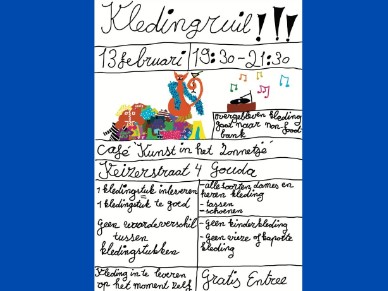 Kledingruil!!!
13 februari 19:30-21:30
overgebleven kleding
gaat naar non-food
bank
Café "Kunst in het Zonnetje"
Keizerstraat 4 Gouda
1 kledingstuk inleveren
=
1 kledingstuk te goed
Geen waardeverschil
tussen
kledingstukken
- alle soorten dames en
heren kleding
- tassen
- schoenen
- geen kinderkleding
- geen vieze of kapotte
kleding
Kleding in te leveren
op het moment zelf
Gratis Entree